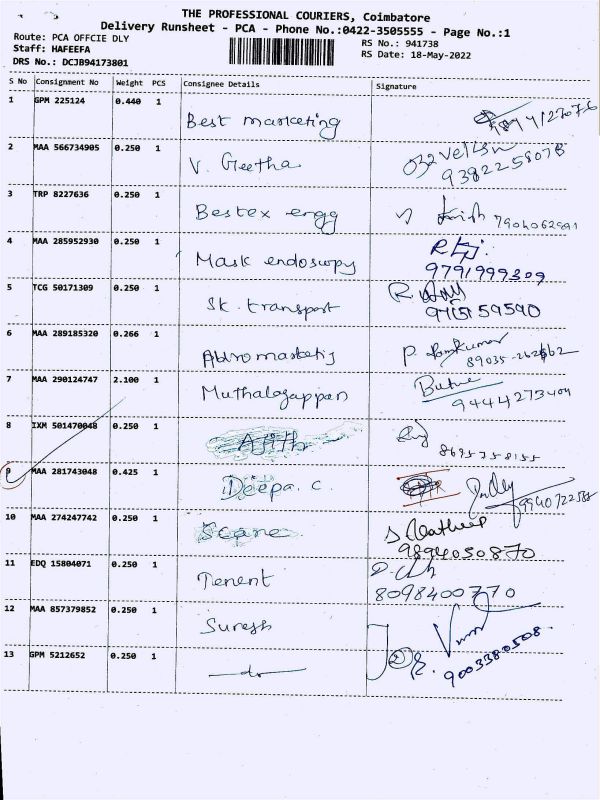 THE PROFESSIONAL COURIERS, Coimbatore
Delivery Runsheet - PCA - Phone No.:0422-3505555 - Page No.:1
Route: PCA OFFCIE DLY
RS No.: 941738
Staff: HAFEEFA
RS Date: 18-May-2022
DRS No.: DCJB94173801
S No Consignment No Weight PCS Consignee Details Signature
1 GPM 225124 0.440 1 Best marketing
2 MAA 566734905 0.250 1 V. Geetha 9382258078
3 TRP 8227636 0.250 1 Bestex engg 7904062991
4 MAA 285952930 0.250 1 Mask endoscopy 9791999309
5 TCG 50171309 0.250 1 SK. transport 9715159590
6 MAA 289185320 0.266 1 P. Ramkumar
7 MAA 290124747 2.100 1 Muthalagappan 9444273404
8 IXM 501470048 0.250 1 8695758155
9 MAA 281743048 0.425 1 Deepa. C.
10 MAA 274247742 0.250 1 Scane 9894050870
11 EDQ 15804071 0.250 1 Tenent 8098400770
12 MAA 857379852 0.250 1 Suresh
13 GPM 5212652 0.250 1 do 9003380508